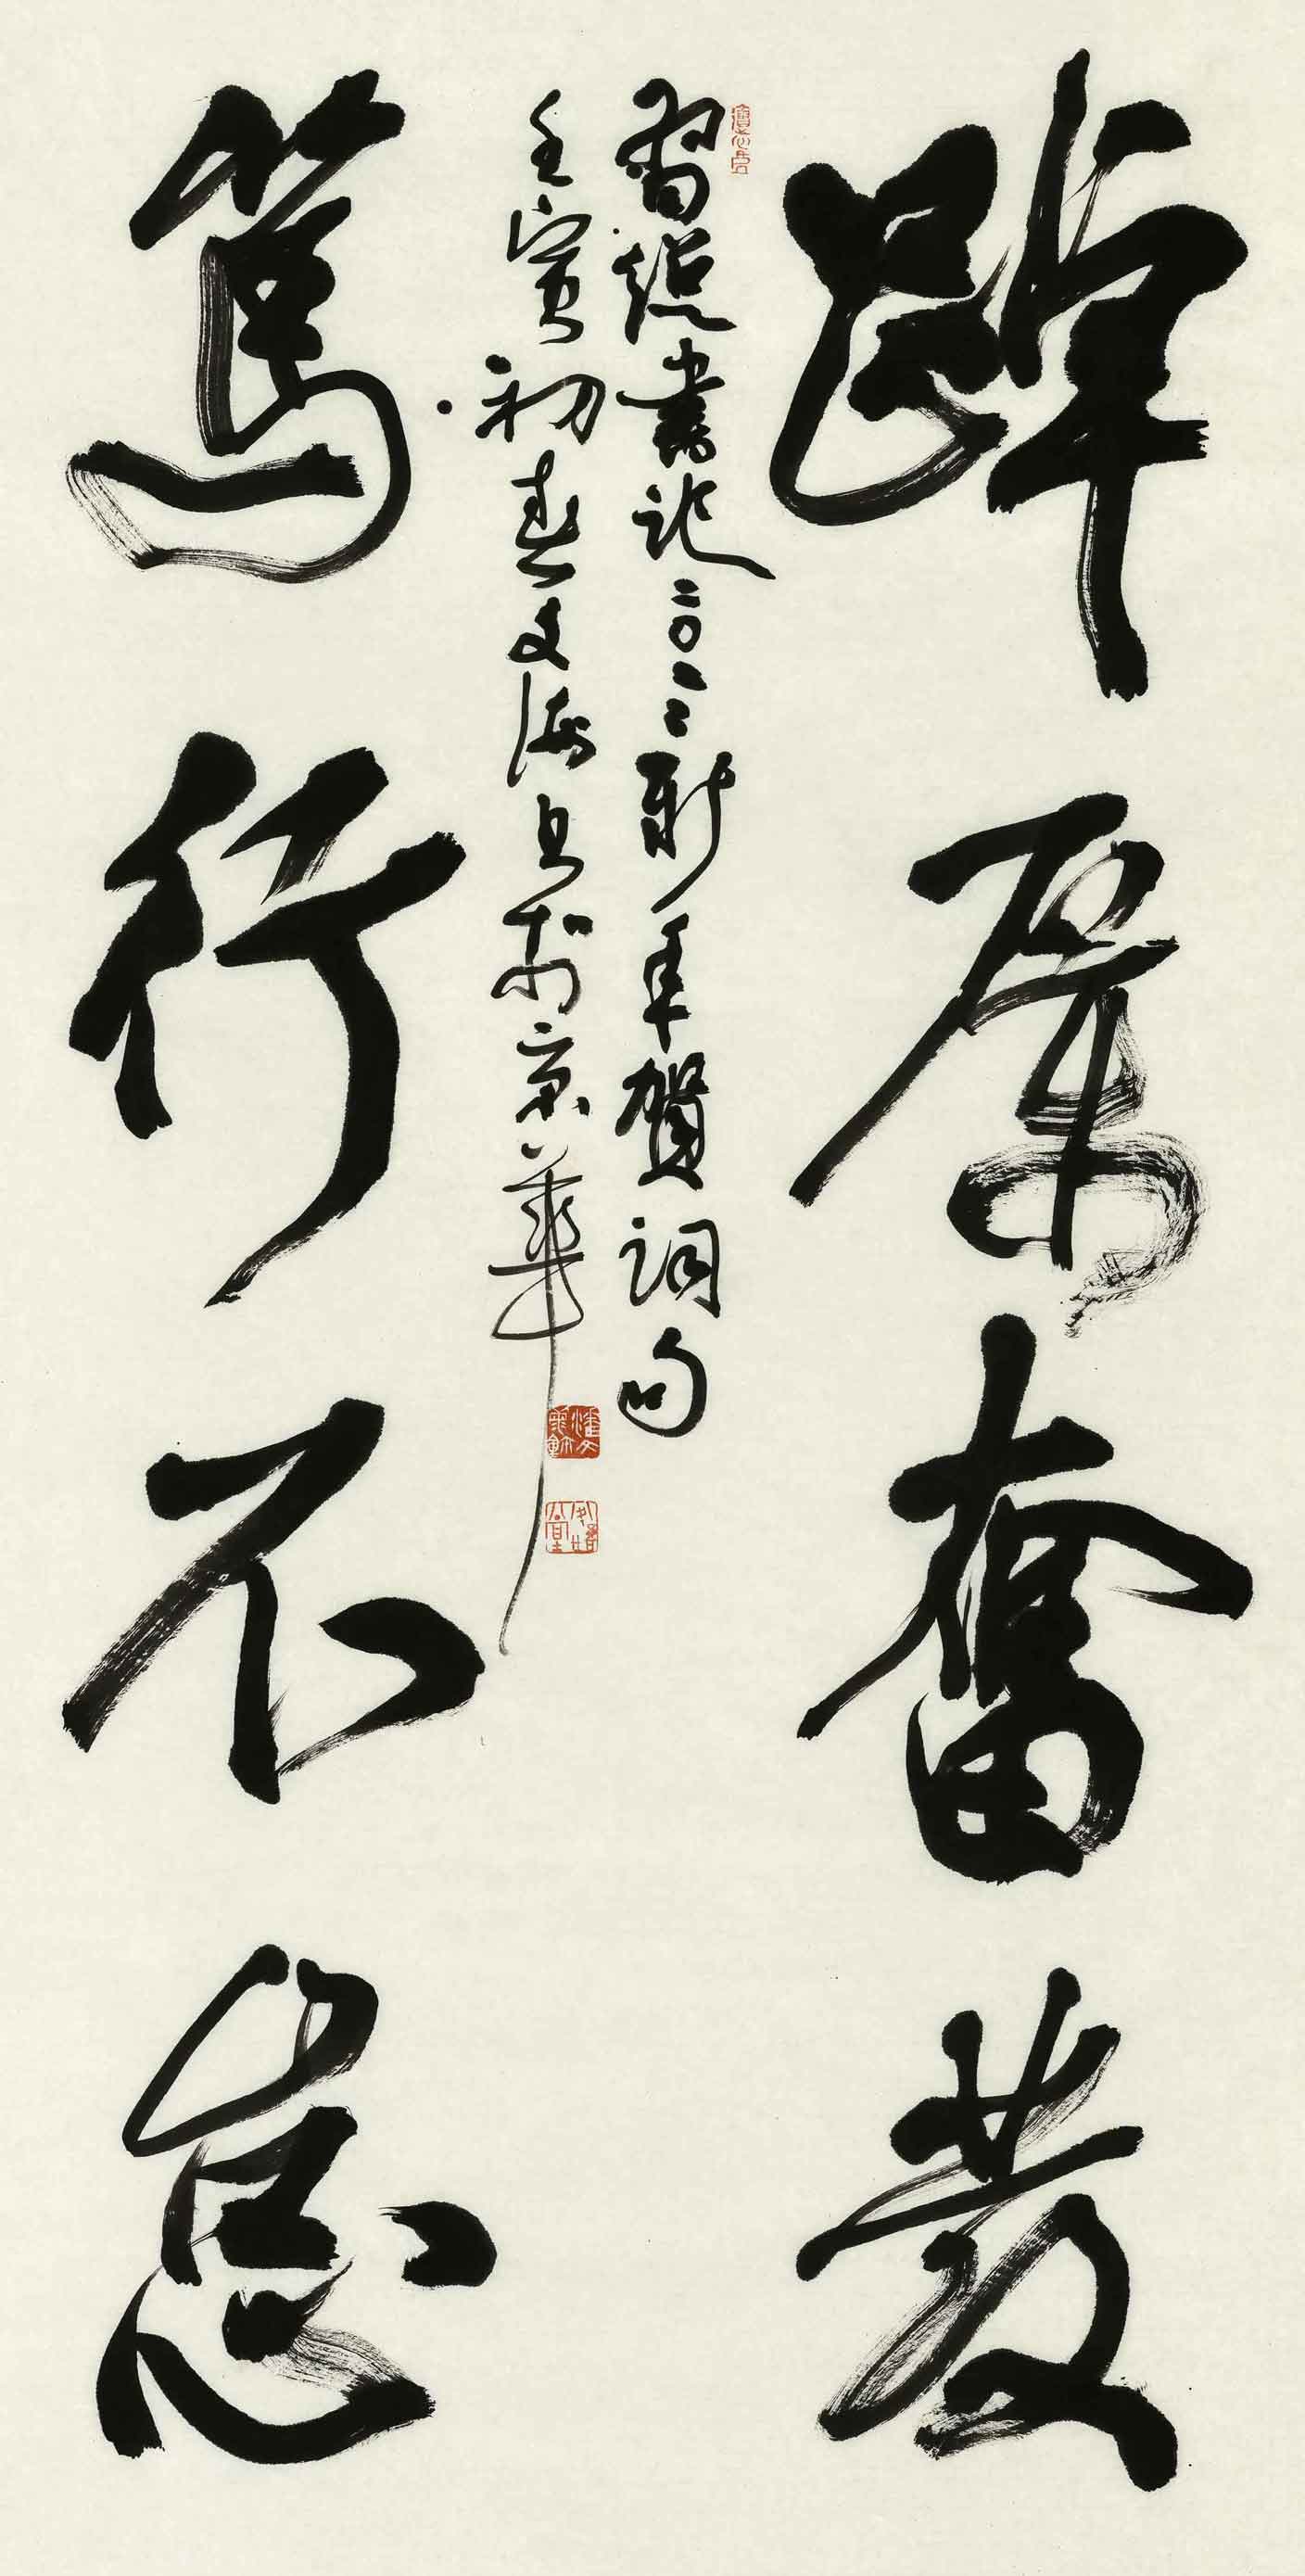 踔厲奮發
篤行不怠
習總書記二〇二二新年賀詞句
壬寅初春文海書於京華